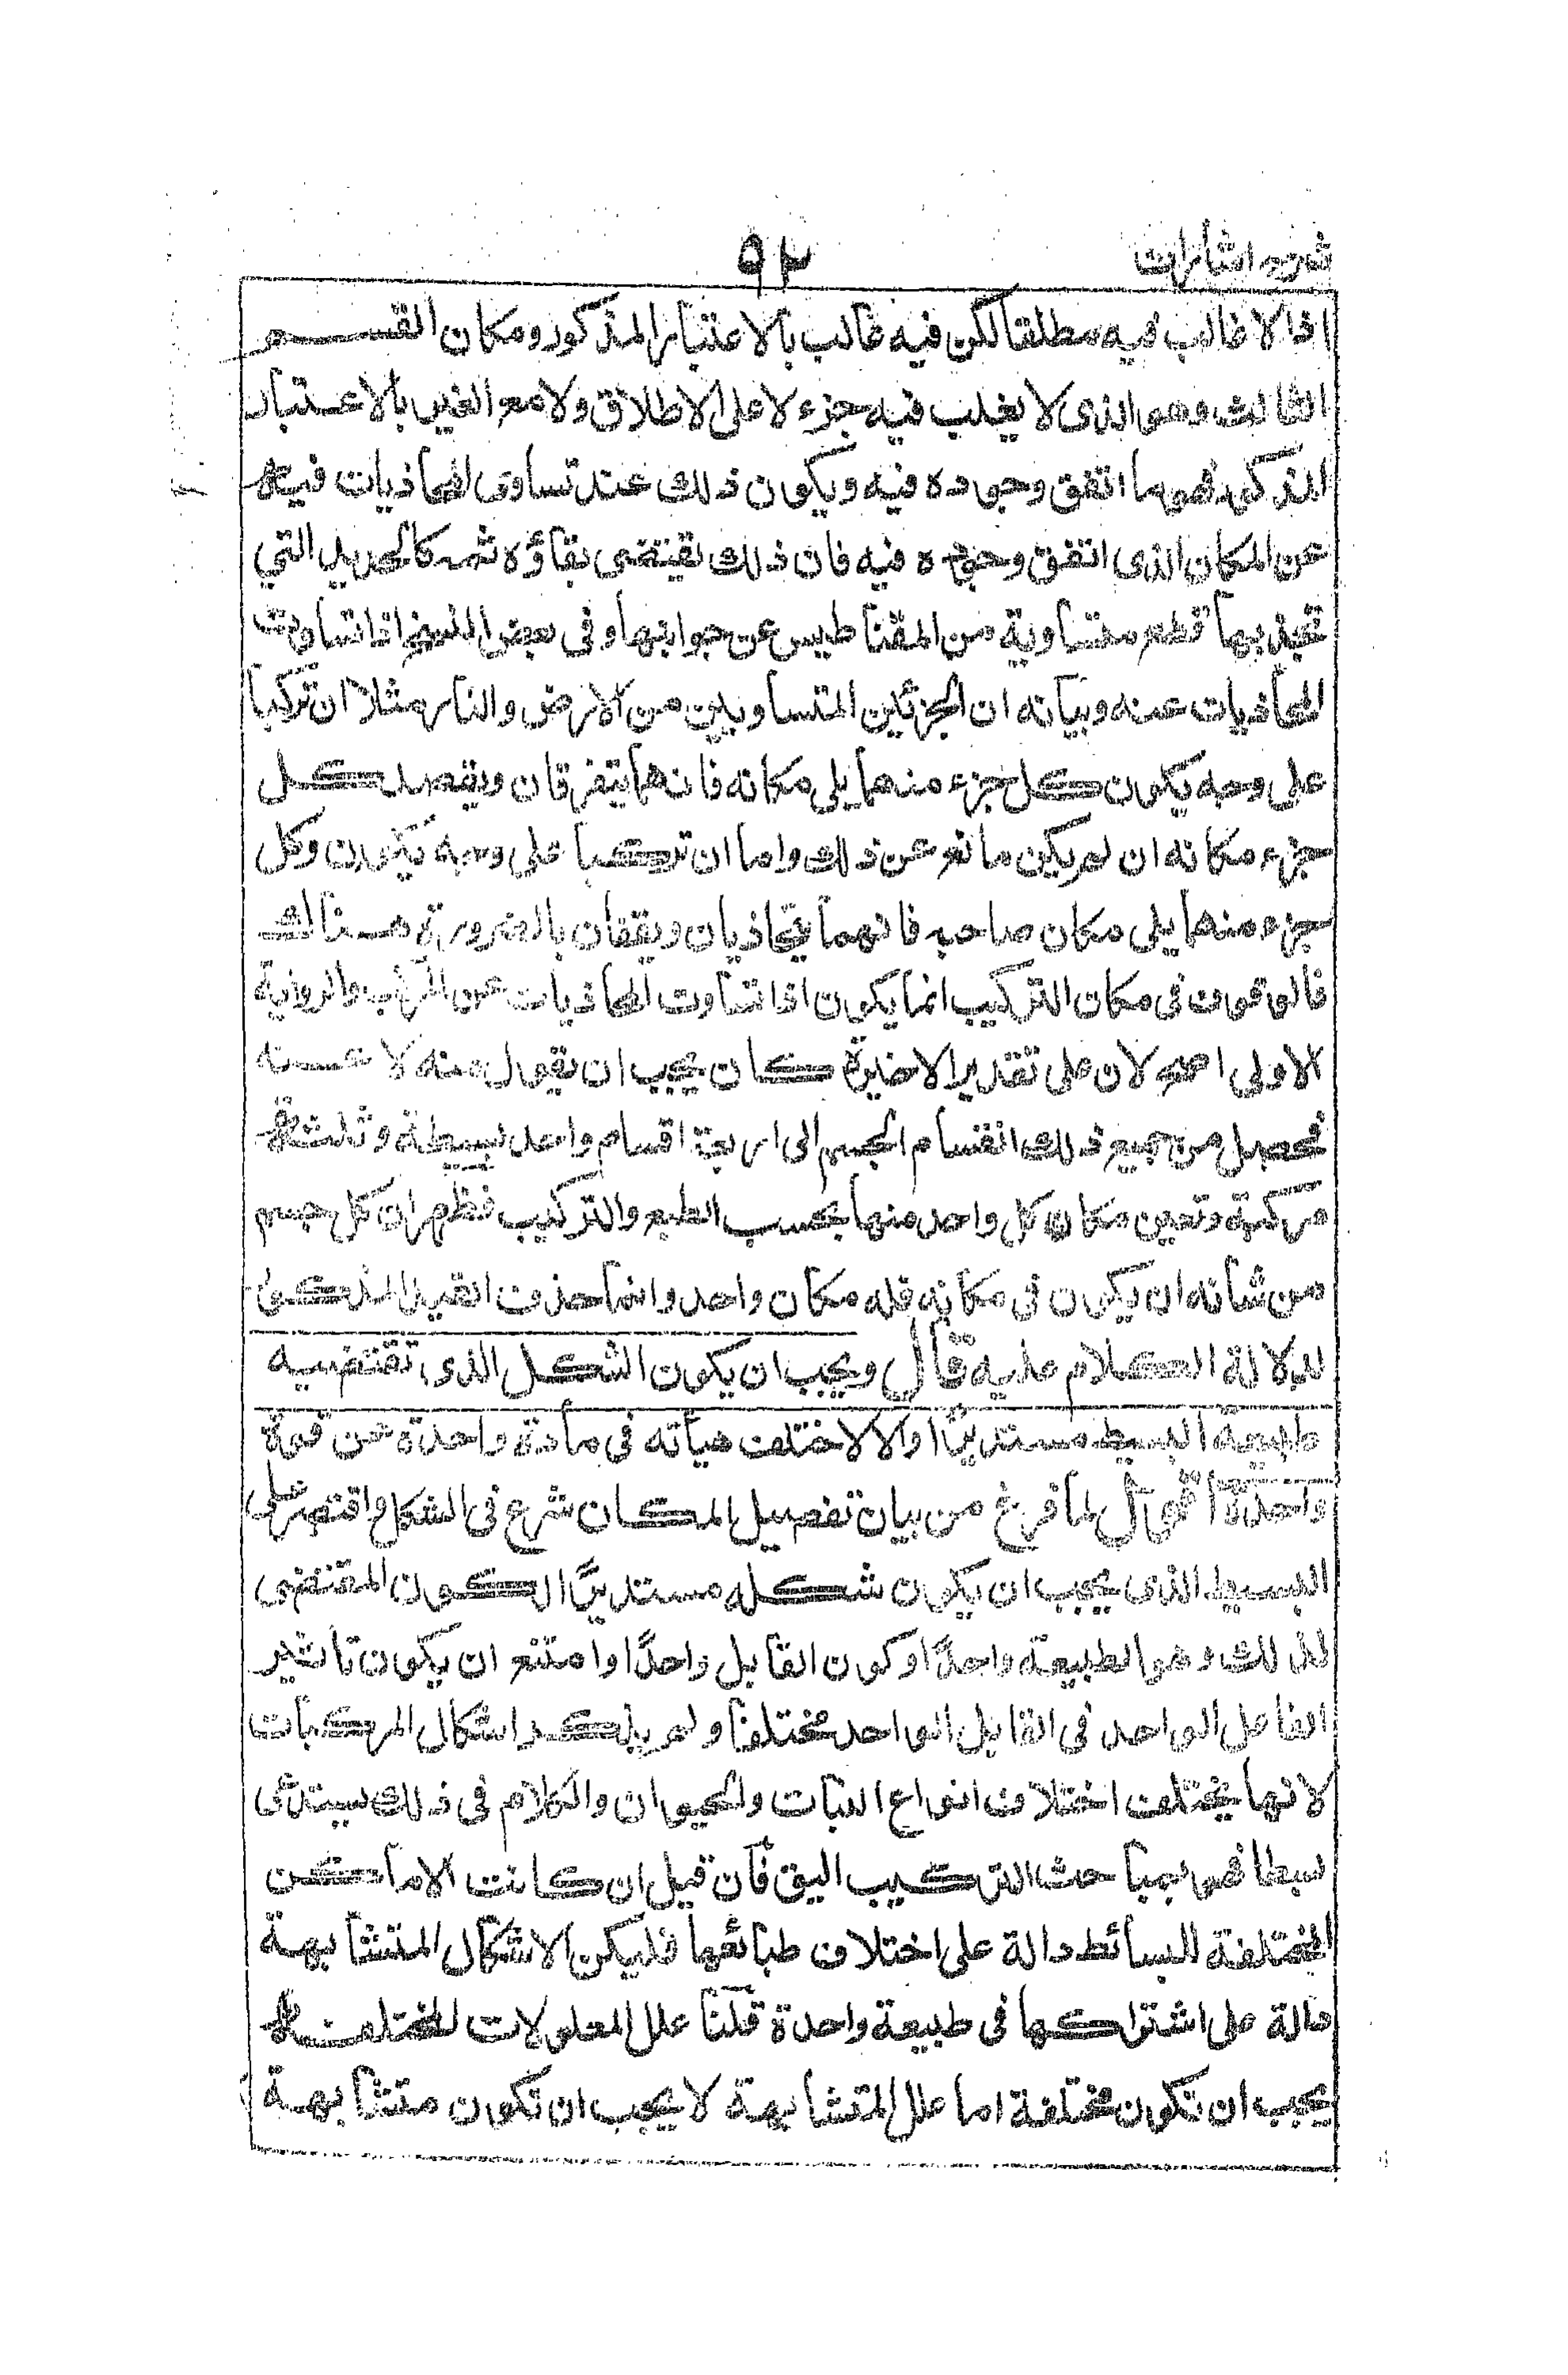 شرح اشارات
٩٣
اذا لا غالب فيه مطلقا لكن فيه غالب بالاعتبار المذكور ومكان القسم
الثالث وهو الذى لا يغلب فيه جزء لا على الاطلاق ولا مع الغير بالاعتبار
المذكور فهو ما اتفق وجوده فيه ويكون ذلك عند تساوى المحاذيات فيه
عن المكان الذى اتفق وجوده فيه فان ذلك يقتضى بقاؤه ثمه كالحديد التي
تجذبها قطع متساوية من المقناطيس عن جوانبها وفى بعض النسخ اذا تساوت
المحاذيات عنه وبيانه ان الجزئين المتساويين من الارض والنار مثلا ان تركبا
على وجه يكون كل جزء منهما يلى مكانه فانهما يتفرقان ويقصد كل
جزء مكانه ان لم يكن مانع عن ذلك واما ان تركبا على وجه يكون وكل
جزء منهما يلى مكان صاحبه فانهما يتحاذيان ويقفان بالضرورة هناك
فالوقوف فى مكان التركيب انما يكون اذا تساوت المحاذيات عن والرواية
الاولى اصح لان على تقدير الاخيرة كان يجب ان يقول منه لا عنه
فحصل من جميع ذلك انقسام الجسم الى اربعة اقسام واحد بسيطة وثلثة
مركبة وتعين مكان كل واحد منها بحسب الطبع والتركيب فظهر ان كل جسم
من شانه ان يكون فى مكانه فله مكان واحد وانما حذف القيد المذكور
لدلالة الكلام عليه قال ويجب ان يكون الشكل الذى تقتضيه
طبيعة البسيط مستديرًا والا لاختلف هيأته فى مادة واحدة عن قوة
واحدة اقول لما فرغ من بيان تفصيل المكان شرع فى الشكل واقتصر على
البسيط الذى يجب ان يكون شكله مستديرًا لكون المقتضى
لذلك وهو الطبيعة واحدًا وكون القابل واحدًا وامتنع ان يكون تاثير
الفاعل الواحد فى القابل الواحد مختلفا ولم يذكر اشكال المركبات
لانها يختلف اختلاف انواع النبات والحيوان والكلام فى ذلك يستدعى
بسطا فهو بمباحث التركيب اليق فان قيل ان كانت الاماكن
المختلفة للبسائط دالة على اختلاف طبائعها فليكن الاشكال المتشابهة
دالة على اشتراكها فى طبيعة واحدة قلنا علل المعلولات المختلفة
يجب ان تكون مختلفة اما علل المتشابهة لا يجب ان تكون متشابهة